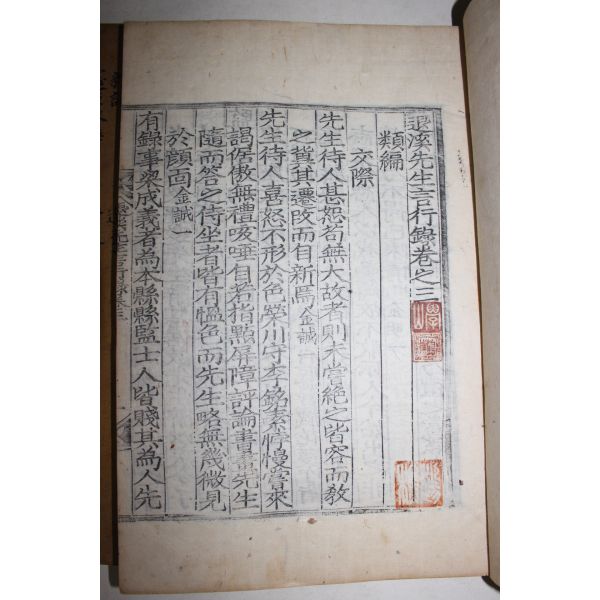 退溪先生言行錄卷之三
類編
交際
先生待人甚恕苟無大故者則未嘗絶之皆容而敎
之冀其遷改而自新焉金誠一
先生待人喜怒不形於色榮川守李銘素悖慢嘗來
謁倨傲無禮咳唾自若指點屛障評論書畫先生
隨而答之侍坐者皆有慍色而先生略無幾微見
於顔面金誠一
有錄事梁成義者為本縣縣監士人皆賤其為人先